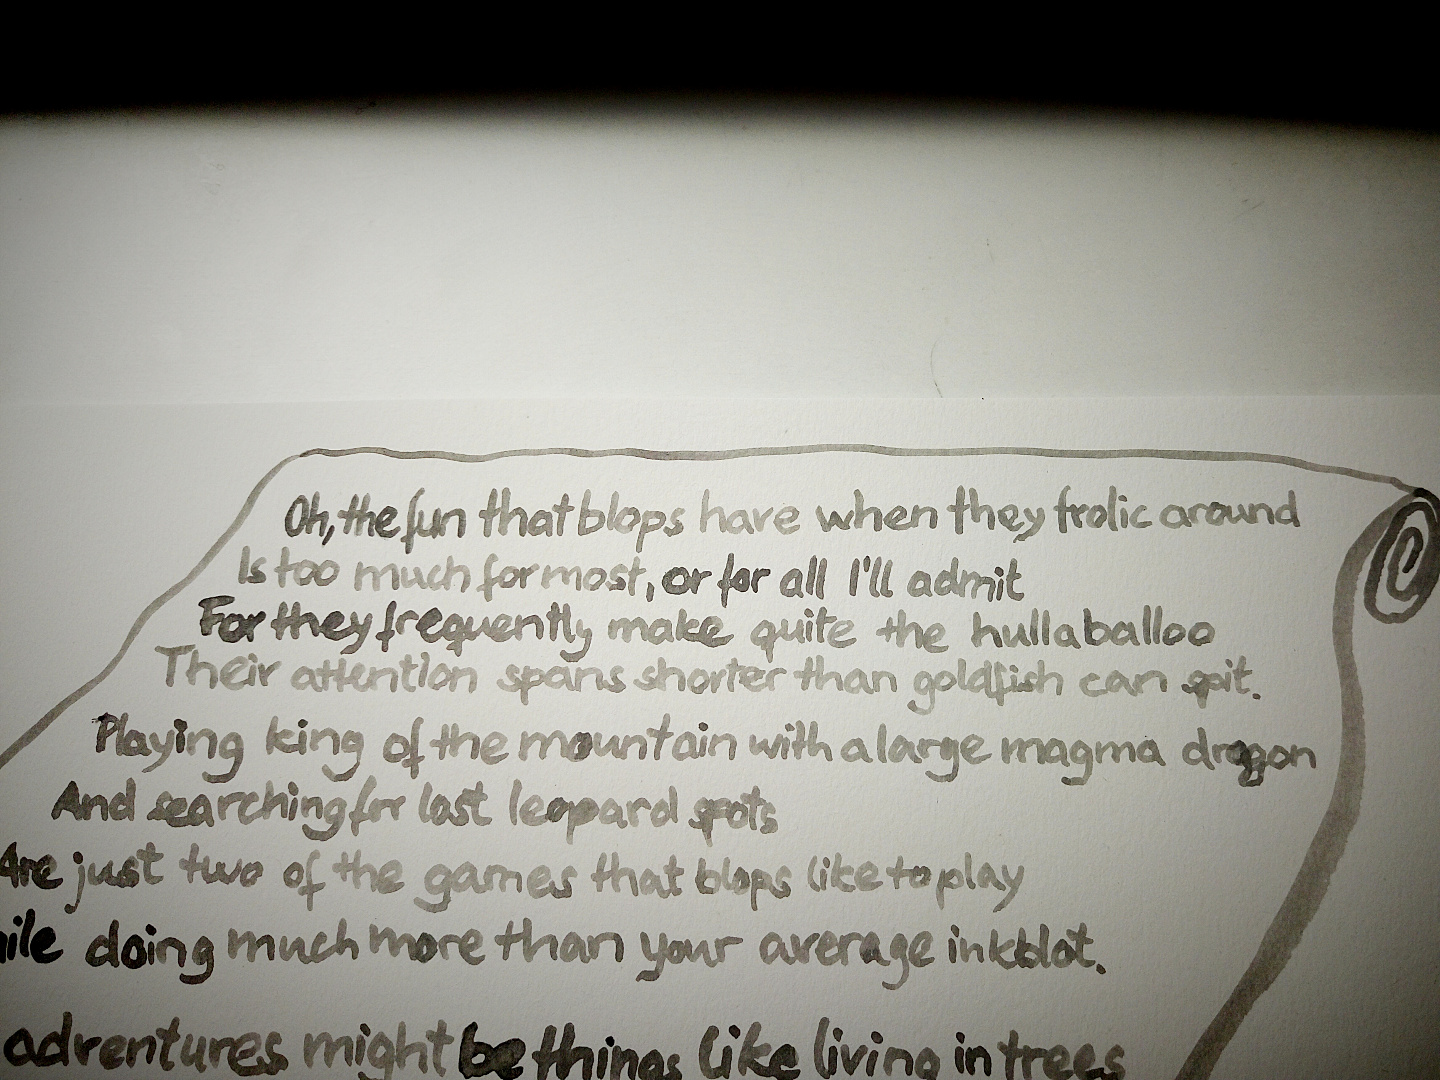 Oh, the fun that blops have when they frolic around
Is too much for most, or for all I'll admit
For they frequently make quite the hullaballoo
Their attention spans shorter than goldfish can spit.
Playing king of the mountain with a large magma dragon
And searching for lost leopard spots
Are just two of the games that blops like to play
doing much more than your average inkblot.
adventures might be things like living in trees